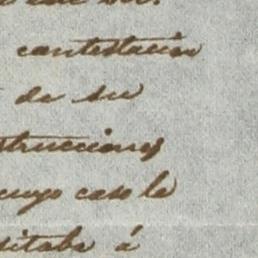 contestacion
de su
strucciones
cuyo caso le
sitaba á